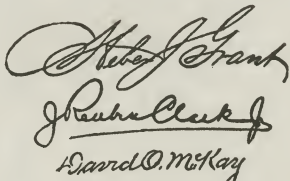 Heber J Grant
J Reuben Clark Jr
David O. McKay